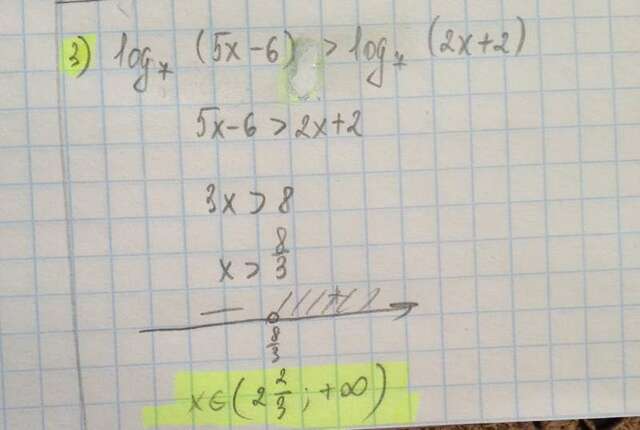 3) log₇ (5x-6) > log₇ (2x+2)
5x-6 > 2x+2
3x > 8
x > 8/3
— +
8/3
x∈(2 2/3; +∞)